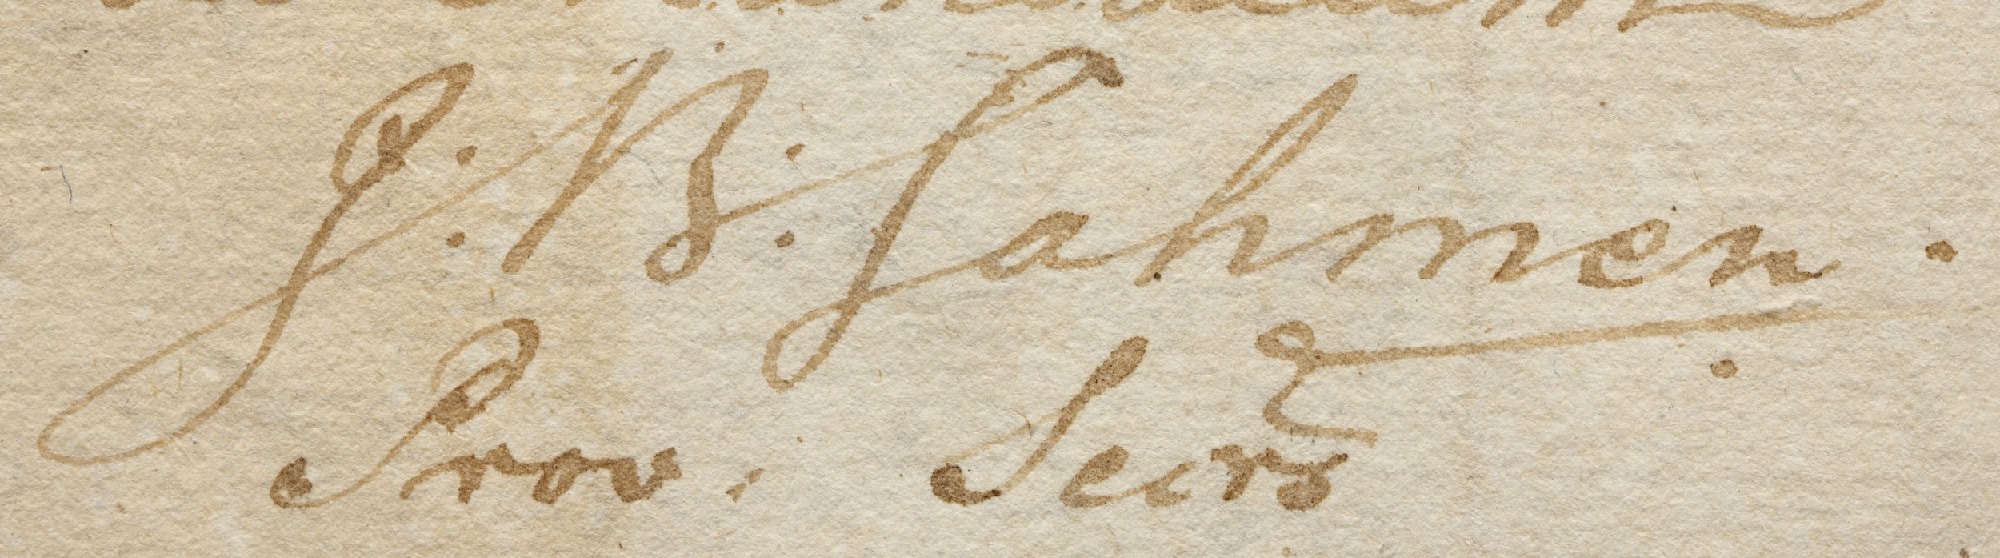 J. B. Lahmen.
Prov. Secrs